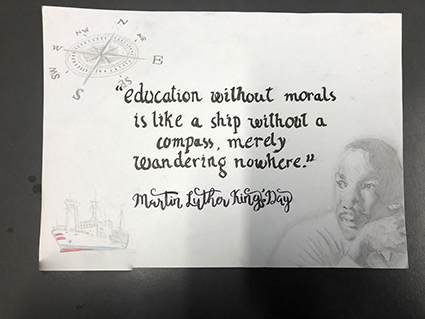 N
NW
NE
W
E
WS
ES
S
"education without morals
is like a ship without a
compass, merely
wandering nowhere."
Martin Luther King's Day